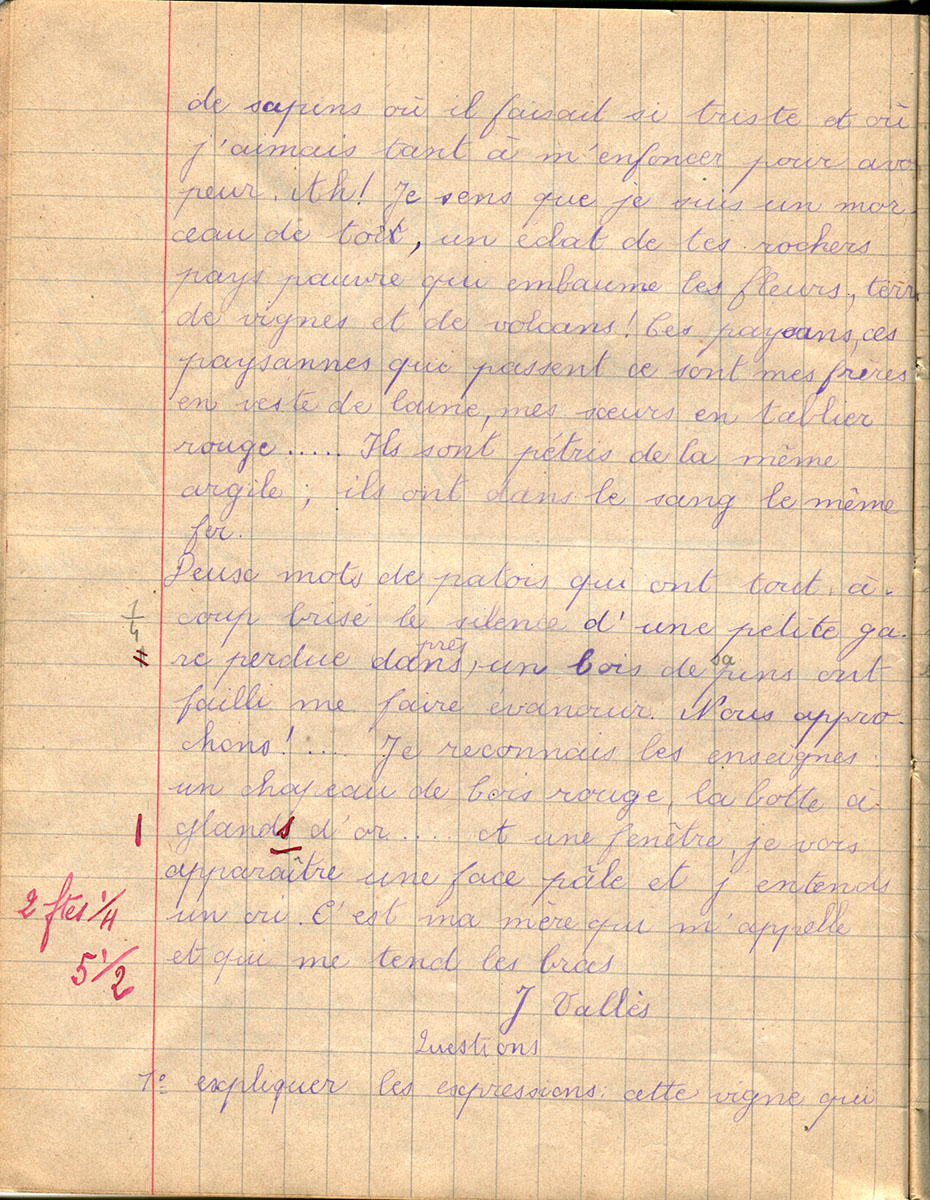 de sapins où il faisait si triste et où
j'aimais tant à m'enfoncer pour avo
peur. Ah! Je sens que je suis un mor
ceau de toi, un éclat de tes rochers
pays pauvre qui embaume les fleurs, terr
de vignes et de volcans! Ces paysans, ces
paysannes qui passent ce sont mes frères
en veste de laine, mes sœurs en tablier
rouge..... Ils sont pétris de la même
argile; ils ont dans le sang le même
fer.
Deux mots de patois qui ont tout à
coup brisé le silence d'une petite ga-
1/4
près sa
re perdue dans, un bois de pins ont
failli me faire évanouir. Nous appro-
chons!.... Je reconnais les enseignes:
un chapeau de bois rouge, la botte à
1
glands d'or..... A une fenêtre, je vois
apparaître une face pâle et j'entends
2 ftes 1/4
un cri. C'est ma mère qui m'appelle
5 1/2
et qui me tend les bras
J Vallès
Questions
1º expliquer les expressions: cette vigne qui